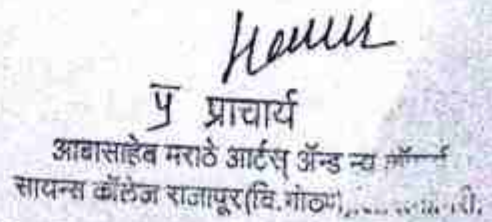 प्र प्राचार्य
आबासाहेब मराठे आर्टस् ॲन्ड न्यु कॉमर्स
सायन्स कॉलेज राजापूर(वि.गोठणे)